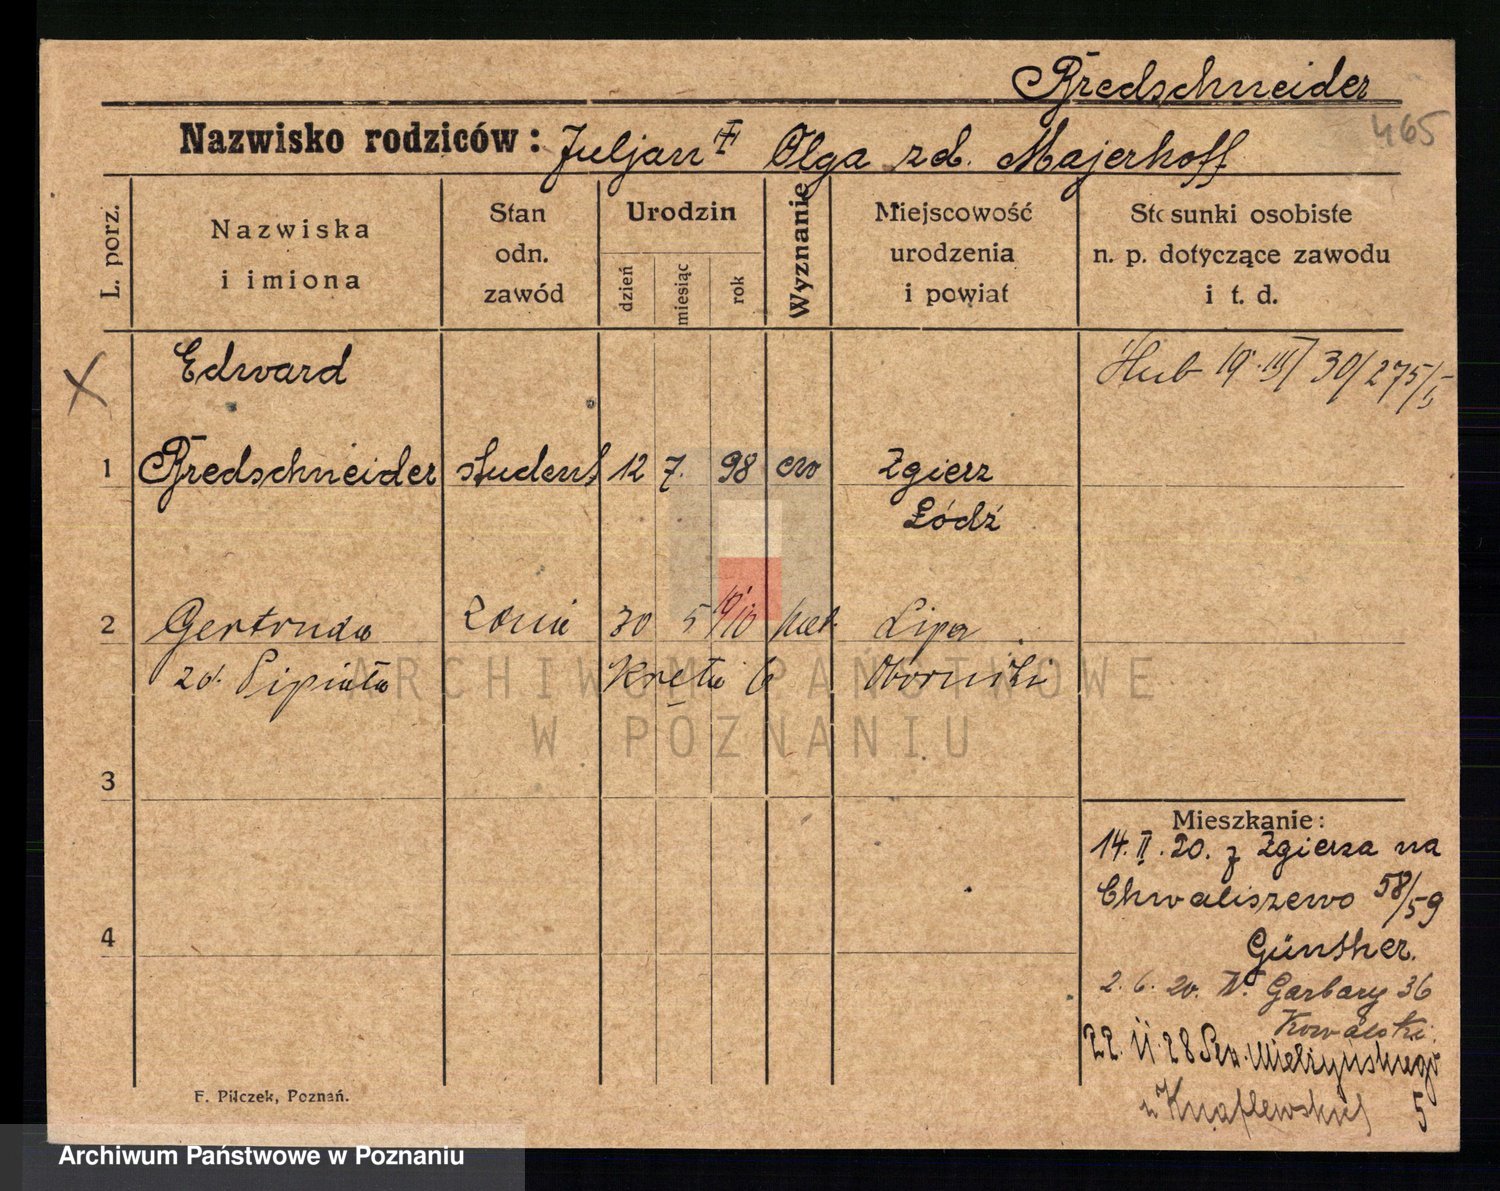 Bredschneider
465
Nazwisko rodziców: Juljan Olga zd. Majerhoff
L. porz.
Nazwiska
i imiona
Stan
odn.
zawód
Urodzin
dzień
miesiąc
rok
Wyznanie
Miejscowość
urodzenia
i powiat
Stosunki osobiste
n. p. dotyczące zawodu
i t. d.
Edward
19 III 30/275/
1 Bredschneider student 12 7. 98 ew Zgierz
Łódź
2 Gertruda żona 30 5 kat. Lipa
zd. Pipiata Kręta 6 Oborniki
3
4
Mieszkanie:
14. II. 20. z Zgierza na
Chwaliszewo 58/59
Günther.
2. 6. 20. W. Garbary 36
Kowalski.
22. 11. 28 Mielżyńskiego
u Knaflewskiej 5
F. Pilczek, Poznań.
ARCHIWUM PAŃSTWOWE
W POZNANIU
Archiwum Państwowe w Poznaniu